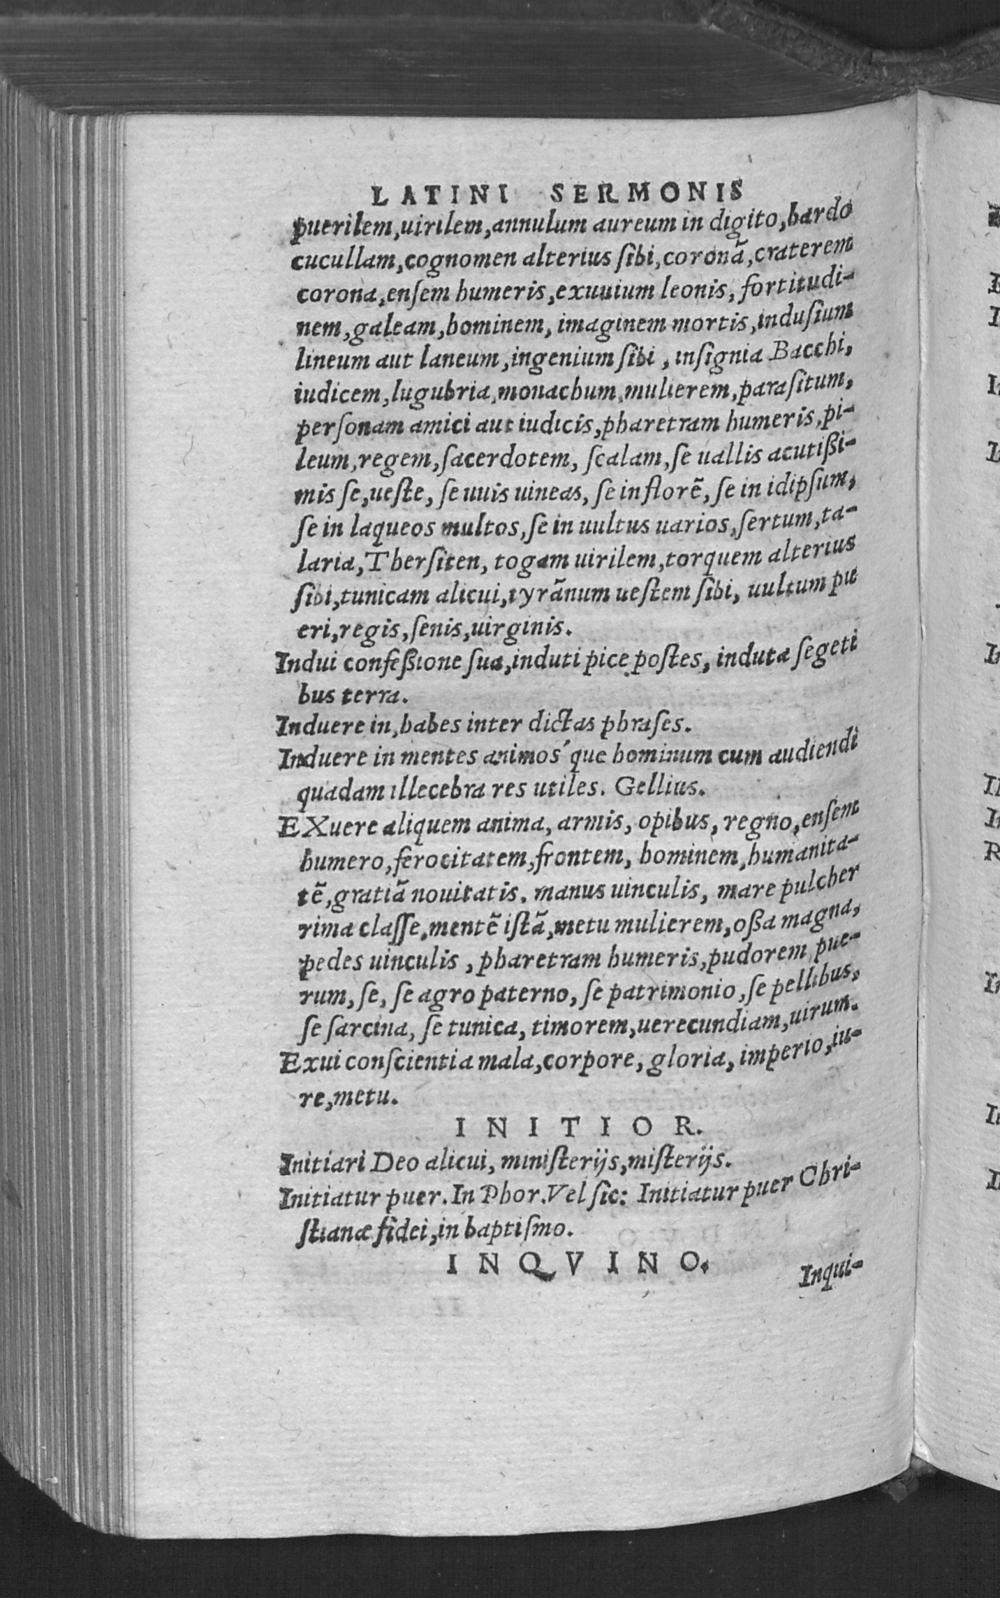 LATINI SERMONIS
puerilem,uirilem,annulum aureum in digito,bardo
cucullam,cognomen alterius sibi,coronã,craterem
corona,ensem humeris,exuuium leonis, fortitudi-
nem,galeam,hominem, imaginem mortis,indusium
lineum aut laneum,ingenium sibi, insignia Bacchi,
iudicem,lugubria,monachum,mulierem,parasitum,
personam amici aut iudicis,pharetram humeris,pi-
leum,regem,sacerdotem, scalam,se uallis acutißi-
mis se,ueste, se uuis uineas, se in florẽ, se in idipsum,
se in laqueos multos,se in uultus uarios,sertum,ta-
laria,Thersiten, togam uirilem,torquem alterius
sibi,tunicam alicui,tyrãnum uestem sibi, uultum pu
eri,regis,senis,uirginis.
Indui confeßione sua,induti pice postes, indutæ segeti
bus terra.
Induere in,habes inter dictas phrases.
Induere in mentes animos´que hominum cum audiendi
quadam illecebra res utiles. Gellius.
EXuere aliquem anima, armis, opibus, regno,ensem
humero,ferocitatem,frontem, hominem,humanita-
tẽ,gratiã nouitatis. manus uinculis, mare pulcher
rima classe,mentẽ istã,metu mulierem,oßa magna,
pedes uinculis, pharetram humeris,pudorem pue-
rum, se, se agro paterno, se patrimonio, se pellibus,
se sarcina, se tunica, timorem,uerecundiam,uirum.
Exui conscientia mala,corpore, gloria, imperio,iu-
re,metu.
INITIOR.
Initiari Deo alicui, ministerijs,misterijs.
Initiatur puer. In Phor.Vel sic: Initiatur puer Chri-
stianæ fidei,in baptismo.
INQVINO.
Inqui-